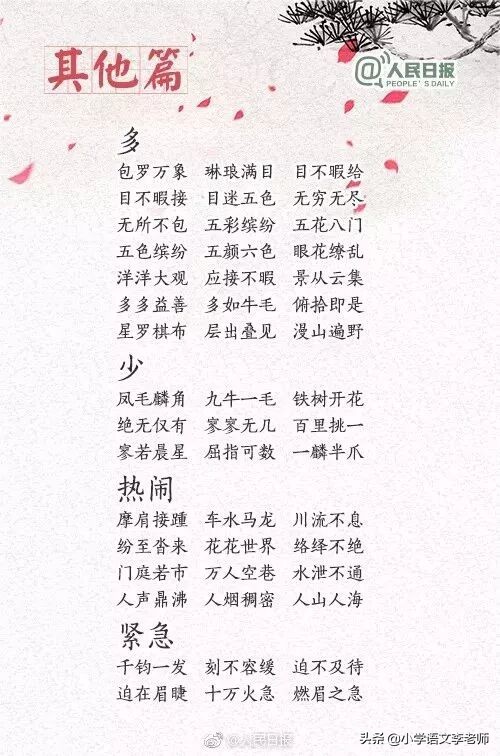 其他篇
@人民日报
PEOPLE'S DAILY
多
包罗万象 琳琅满目 目不暇给
目不暇接 目迷五色 无穷无尽
无所不包 五彩缤纷 五花八门
五色缤纷 五颜六色 眼花缭乱
洋洋大观 应接不暇 景从云集
多多益善 多如牛毛 俯拾即是
星罗棋布 层出叠见 漫山遍野
少
凤毛麟角 九牛一毛 铁树开花
绝无仅有 寥寥无几 百里挑一
寥若晨星 屈指可数 一麟半爪
热闹
摩肩接踵 车水马龙 川流不息
纷至沓来 花花世界 络绎不绝
门庭若市 万人空巷 水泄不通
人声鼎沸 人烟稠密 人山人海
紧急
千钧一发 刻不容缓 迫不及待
迫在眉睫 十万火急 燃眉之急
@人民日报
头条@小学语文李老师